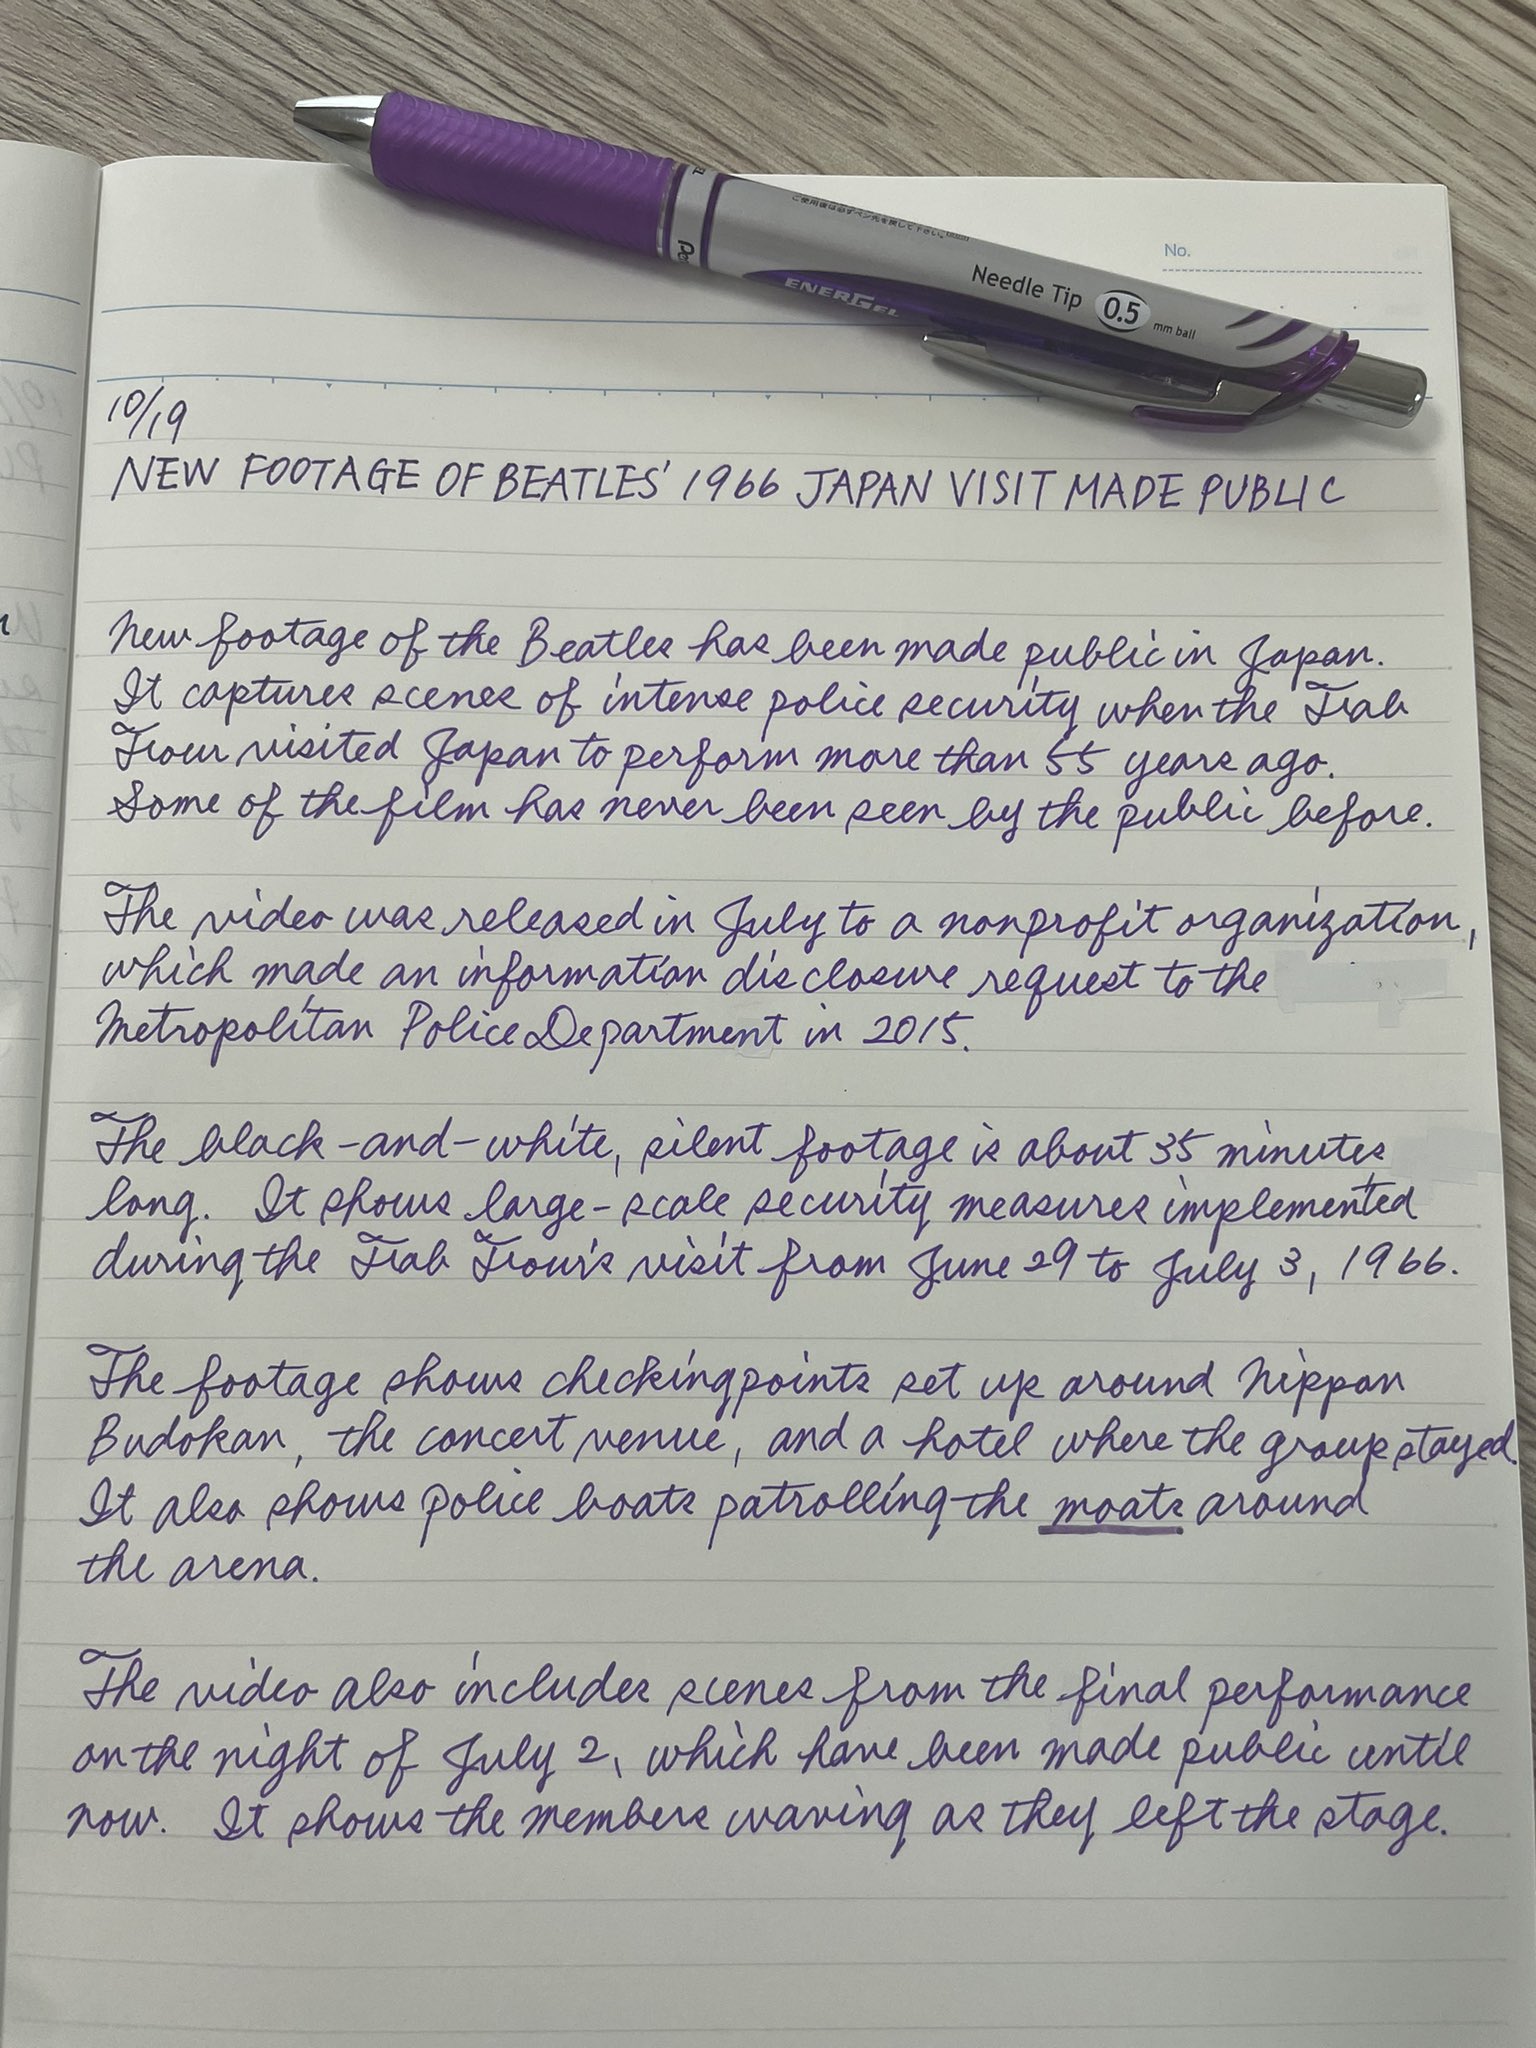 ENERGEL
Needle Tip 0.5 mm ball
No.
10/19
NEW FOOTAGE OF BEATLES' 1966 JAPAN VISIT MADE PUBLIC
New footage of the Beatles has been made public in Japan.
It captures scenes of intense police security when the Fab
Four visited Japan to perform more than 55 years ago.
Some of the film has never been seen by the public before.
The video was released in July to a nonprofit organization,
which made an information disclosure request to the
Metropolitan Police Department in 2015.
The black-and-white, silent footage is about 35 minutes
long. It shows large-scale security measures implemented
during the Fab Four's visit from June 29 to July 3, 1966.
The footage shows checkingpoints set up around Nippon
Budokan, the concert venue, and a hotel where the group stayed.
It also shows police boats patrolling the moats around
the arena.
The video also includes scenes from the final performance
on the night of July 2, which have been made public until
now. It shows the members waving as they left the stage.